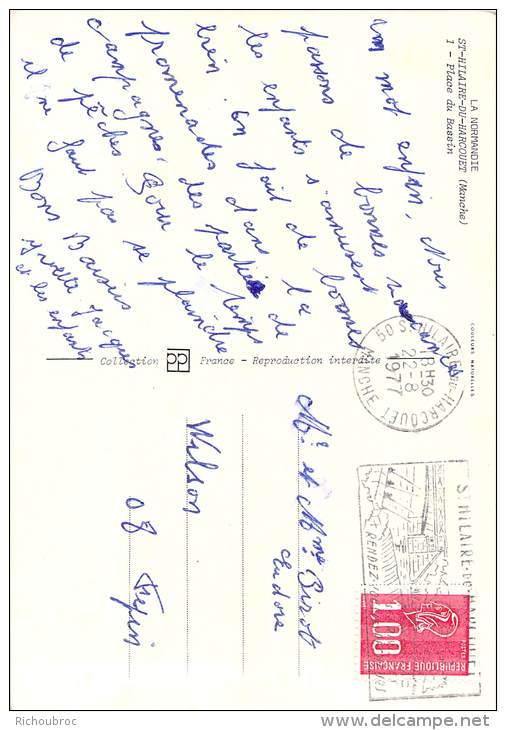 LA NORMANDIE
ST-HILAIRE-DU-HARCOUET (Manche)
1 - Place du Bassin
un mot enfin. Nous
passons de bonnes vacances
les enfants s'amusent
bien. on fait de bonnes
promenades dans la
campagne, des parties de
de pêches. Pour le temps
il ne faut pas se plaindre
Bons Baisers
Yvette Jacques
et les enfants
Collection France - Reproduction interdite
COULEURS NATURELLES
50 ST HILAIRE-DU-HARCOUET
18H30
22-8
1977
MANCHE
ST HILAIRE-DU-HARCOUET
RENDEZ-VOUS
1,00
REPUBLIQUE FRANÇAISE
Mr et Mme Bizot
Eudore
Wilson
08
Richoubroc